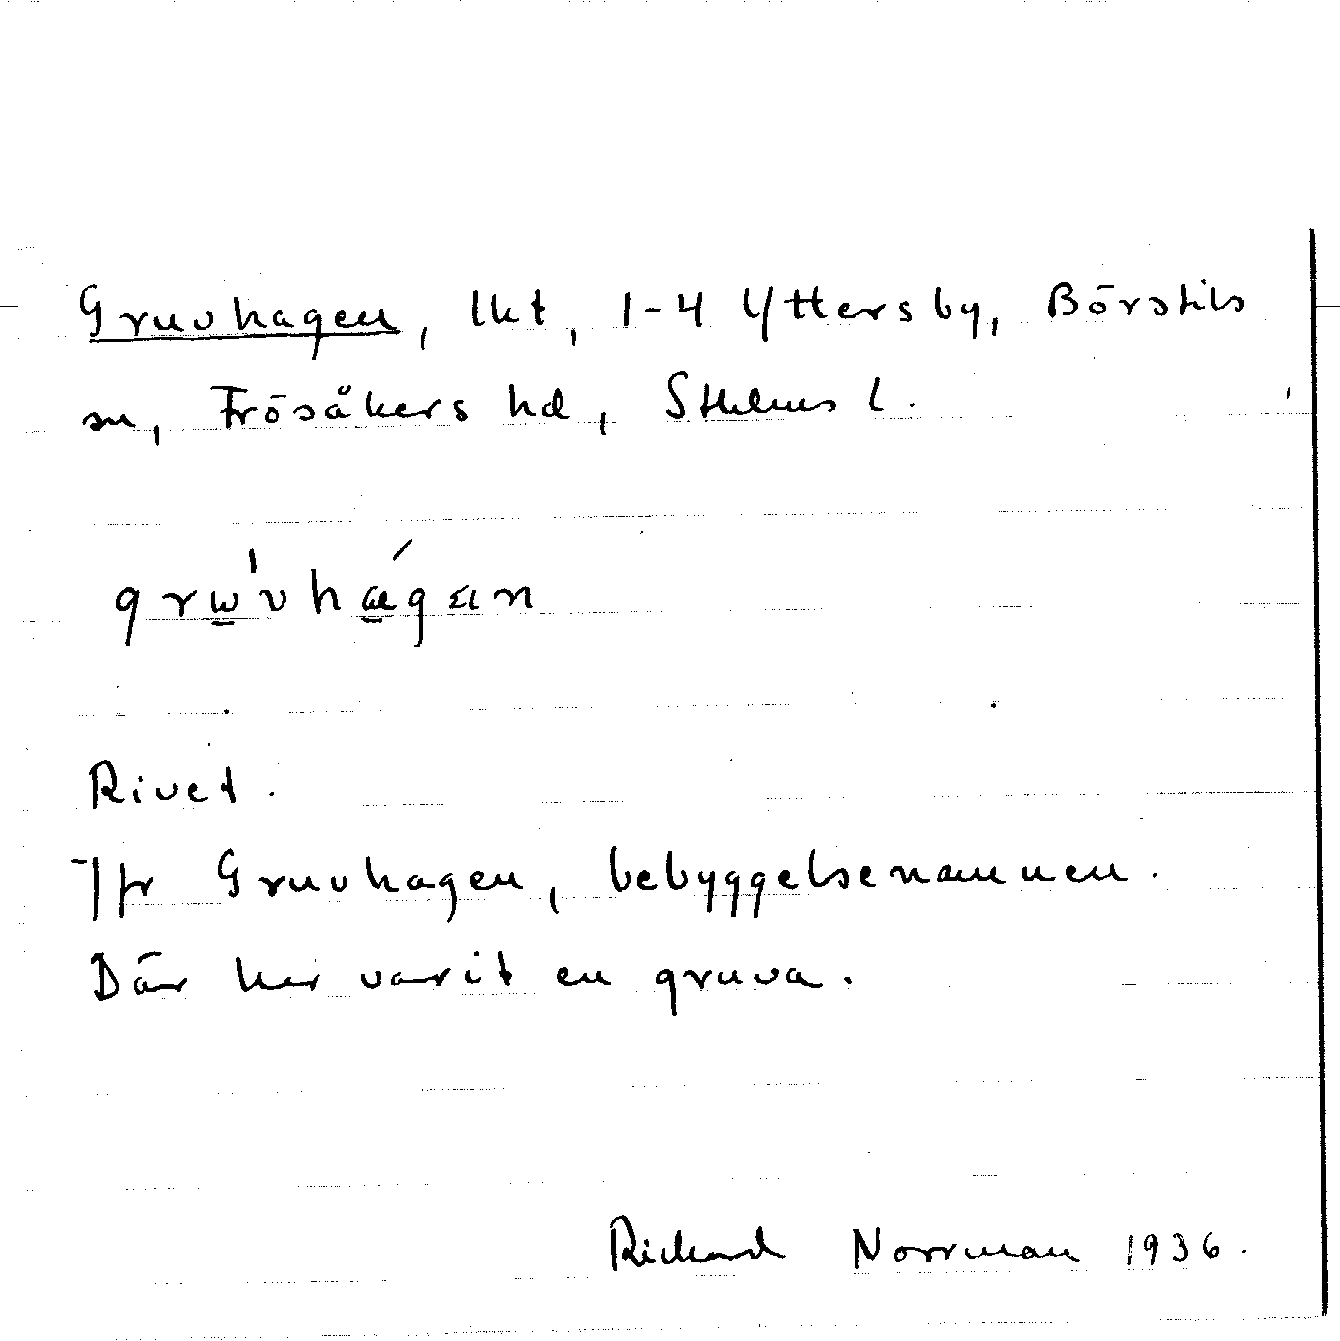 Gruvhagen, lkt, 1-4 Yttersby, Börstils
sn, Frösåkers hd, Sthlms l.
grω̲'vhá̲gan
Rivet.
Jfr Gruvhagen, bebyggelsenamnen.
Där har varit en gruva.
Rickard Norrman 1936.